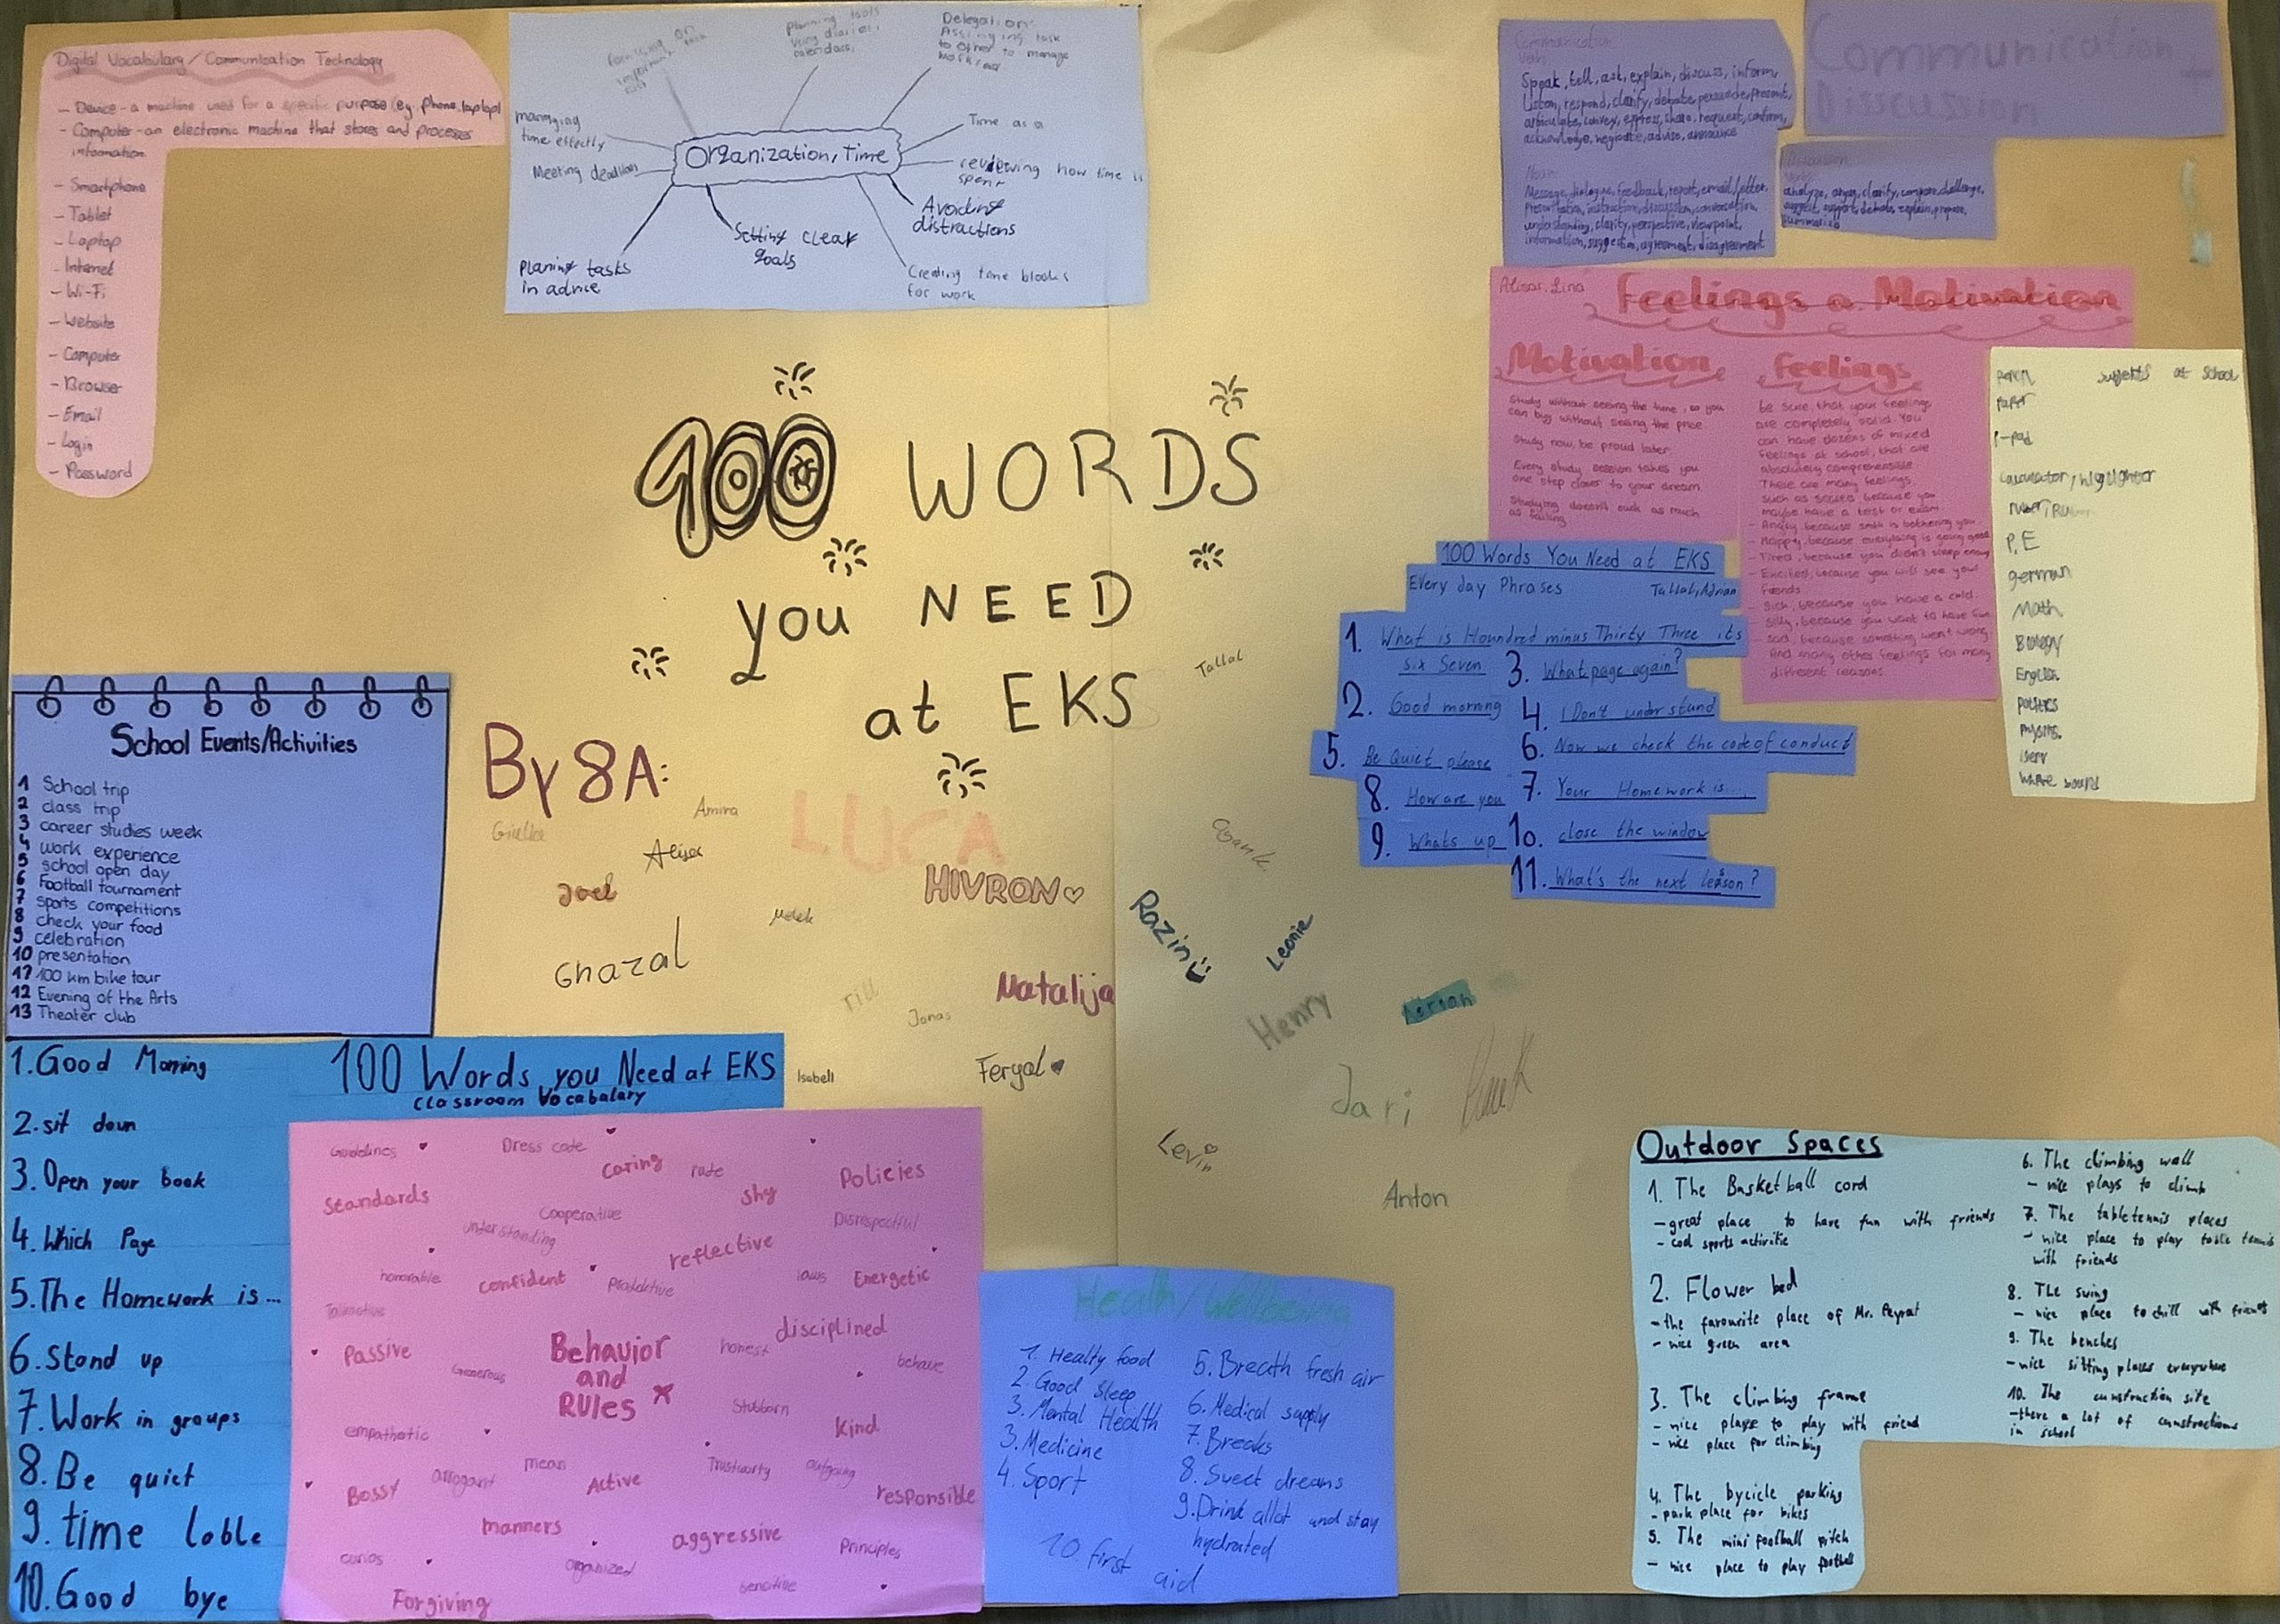 Digital Vocabulary/Communication Technology
- Device - a machine used for a specific purpose (eg. phone, laptop)
- Computer - an electronic machine that stores and processes
information
- Smartphone
- Tablet
- Laptop
- Internet
- Wi-Fi
- Website
- Computer
- Browser
- Email
- Login
- Password
Organization, Time
Delegation
Assigning task
to other to manage
planning tools
using diaries,
calendars,
managing
time effectly
Meeting deadlion
Time as a
reviewing how time is
spent
Avoiding
distractions
Setting clear
goals
Planing tasks
in advice
Creating time blocks
for work
Communication +
Disscussion
Communication
Verbs
Speak, tell, ask, explain, discuss, inform,
Listen, respond, clarify, debate, persuade, present,
articulate, convey, express, share, request, confirm,
acknowledge, negotiate, advise, announce
Message, dialogue, feedback, report, email/letter,
Presentation, instruction, discussion, conversation,
understanding, clarity, perspective, viewpoint,
information, suggestion, agreement, disagreement
analyze, argue, clarify, compare, challenge,
suggest, support, debate, explain, propose,
summarize
Alisar, Lina
Feelings & Motivation
Motivation
Study without seeing the time, so you
can buy without seeing the price.
Study now, be proud later
Every study session takes you
one step closer to your dream
Studying doesn't suck as much
as failing
Feelings
Be sure, that your feelings
are completely valid. You
can have dozens of mixed
feelings at school, that are
absolutely comprehensible.
These are many feelings,
such as scared, because you
maybe have a test or exam.
- Angry, because smth is bothering you
- Happy, because everything is going good
- Tired, because you didn't sleep enough
- Excited, because you will see your
friends
- Sick, because you have a cold
silly, because you want to have fun
sad, because something went wrong
And many other feelings for many
different reasons
subjects at school
paper
i-pad
calculator/highlighter
P.E
german
Math
Biology
English
politics
physics
iserv
100 WORDS
you NEED
at EKS
100 Words You Need at EKS
Every day Phrases Tallal, Adrian
1. What is Houndred minus Thirty Three its
six Seven
2. Good morning
3. What page again?
4. I Don't understand
5. Be Quiet please
6. Now we check the code of conduct
7. Your Homework is....
8. How are you
9. Whats up
10. close the window
11. What's the next lesson?
School Events/Activities
1 School trip
2 class trip
3 career studies week
4 work experience
5 school open day
6 Football tournament
7 sports competitions
8 check your food
9 celebration
10 presentation
11 100 km bike tour
12 Evening of the Arts
13 Theater club
By 8A:
Tallal
Amina
LUCA
Alisar
Joel
HIVRON
Melek
Ghazal
Razin
Leonie
Natalija
Till
Jonas
Henry
Adrian
Isabell
Feryal
Jari
Levin
Anton
100 Words you Need at EKS
Classroom Vocabalary
1. Good Morning
2. sit down
3. Open your book
4. Which Page
5. The Homework is ...
6. Stand up
7. Work in groups
8. Be quiet
9. time table
10. Good bye
Guidelines
Dress code
caring
rude
Policies
Standards
shy
Cooperative
understanding
Disrespectful
reflective
honorable
confident
Produktive
laws
Energetic
Talkative
Behavior
and
RULES
disciplined
honest
Passive
behave
Generous
Stubborn
empathetic
kind
mean
arrogant
Active
Trustworty
outgoing
Bossy
responsible
manners
aggressive
Principles
curios
organized
sensitive
Forgiving
Health/Wellbeing
1. Healty food
2. Good Sleep
3. Mental Health
3. Medicine
4. Sport
5. Breath fresh air
6. Medical supply
7. Breaks
8. Sweet dreams
9. Drink allot and stay
hydrated
10. first aid
Outdoor Spaces
1. The Basketball cord
- great place to have fun with friends
- cool sports activitie
2. Flower bed
- the favourite place of Mr. Peyrat
- nice green area
3. The climbing frame
- nice playse to play with friend
- nice place for climbing
4. The bycicle parking
- park place for bikes
5. The mini football pitch
- nice place to play football
6. The climbing wall
- nice plays to climb
7. The tabletennis places
- nice place to play table tennis
with friends
8. The swing
- nice place to chill with friends
9. The benches
- nice sitting places everywhere
10. The cunstruction site
- there a lot of cunstructions
in school